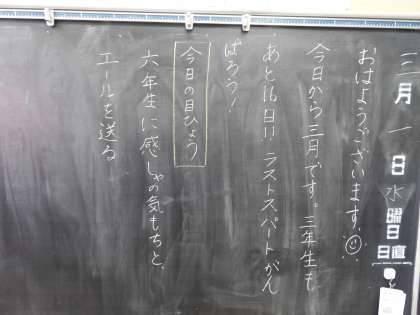 三月一日水曜日
日直
おはようございます。
今日から三月です。三年生も
あと16日!! ラストスパートがん
ばろう!
今日の目ひょう
六年生に感しゃの気もちと
エールを送る